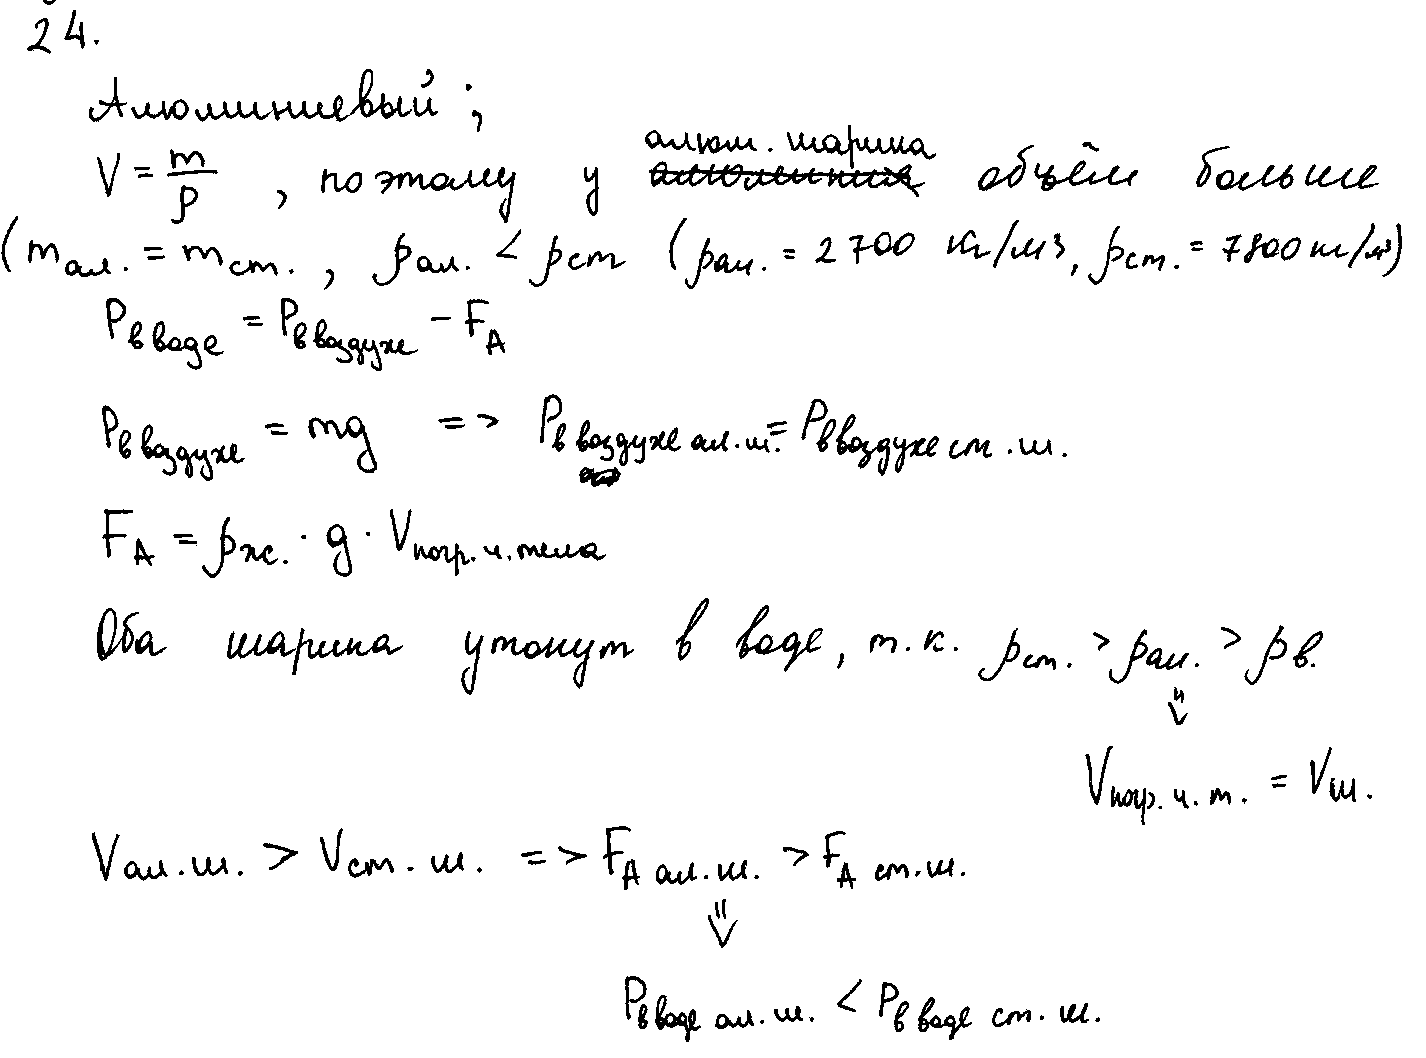 24.
Алюминиевый ;
V = m/ρ , поэтому у алюм. шарика объём больше
(mал. = mст. , ρал. < ρст (ρал. = 2 700 кг/м3, ρст. = 7800 кг/м³)
Pв воде = Pв воздухе − FA
Pв воздухе = mg => Pв воздухе ал.ш. = Pв воздухе ст.ш.
FA = ρж. · g · Vпогр.ч.тела
Оба шарика утонут в воде, т.к. ρст. > ρал. > ρв.
⇓
Vпогр.ч.т. = Vш.
Vал.ш. > Vст.ш. => FA ал.ш. > FA ст.ш.
⇓
Pв воде ал.ш. < Pв воде ст.ш.